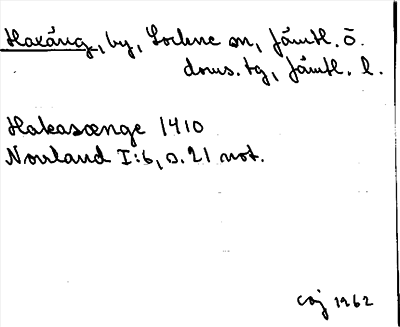 Haxäng, by, Lockne sn, Jämtl. ö.
doms. tg, Jämtl. l.
Hakasænge 1410
Norrland I:6, s. 21 not.
COJ 1962